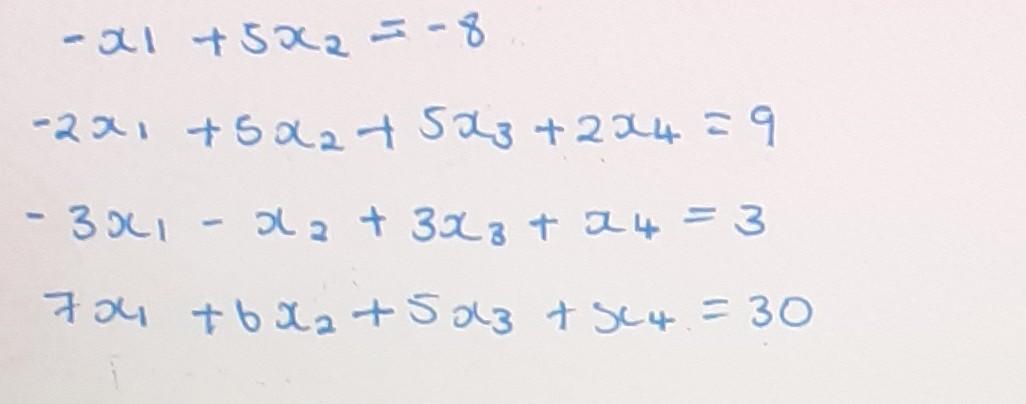 -x1 +5x2 = -8
-2x1 +5x2 + 5x3 +2x4 = 9
-3x1 - x2 + 3x3 + x4 = 3
7x1 +6x2 +5x3 +x4 = 30